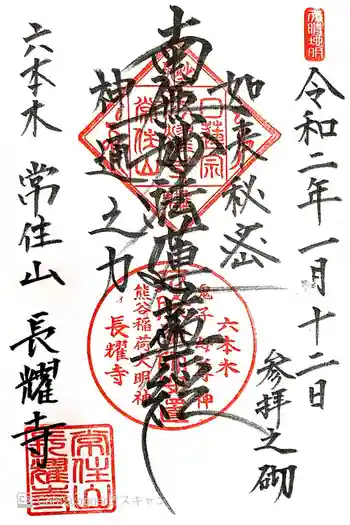 令和二年一月十二日
参拝之砌
如来秘密
南無妙法蓮華経
神通之力
六本木
常住山
長耀寺
日蓮宗
常住山
六本木
鬼子母神
安置
熊谷稲荷大明神
長耀寺
常住山
長耀寺